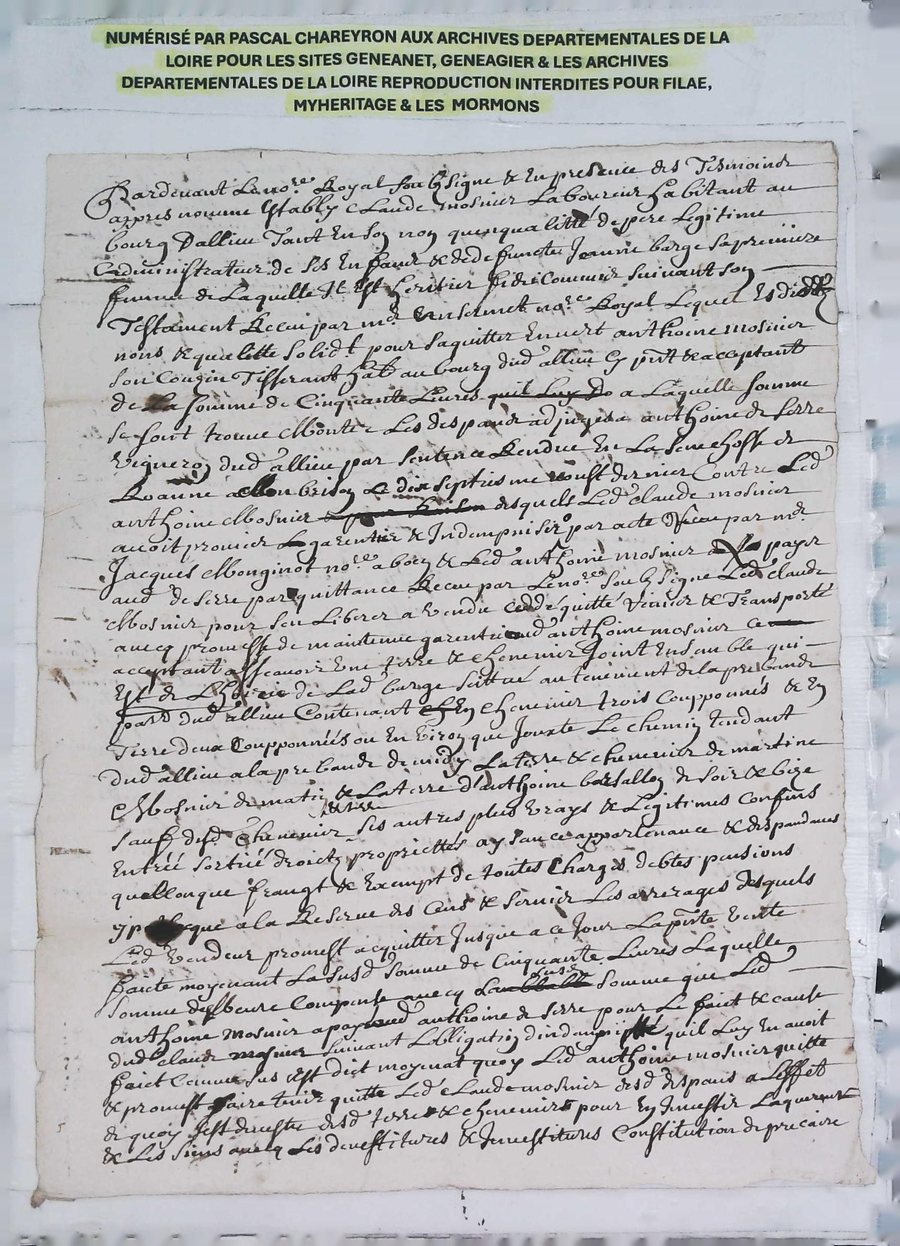 NUMÉRISÉ PAR PASCAL CHAREYRON AUX ARCHIVES DEPARTEMENTALES DE LA
LOIRE POUR LES SITES GENEANET, GENEAGIER & LES ARCHIVES
DEPARTEMENTALES DE LA LOIRE REPRODUCTION INTERDITES POUR FILAE,
MYHERITAGE & LES MORMONS
Pardevant le no.re Royal soubsigne & En presence des Tesmoins
appres nomme Estably Claude mosnier Laboureur habitant au
bourg dallieu Tant En son nom quen qualitté de pere Legitime
administrateur de ses Enfans & de defuncte Jeanne barge sa premiere
femme de Laquelle Il Est heritier fideicommis suivant son
Testament Receu par m.e no.re Royal Lequel
noms & qualitte solid.t pour saquitter Envert anthoine mosnier
son Cousin Tisserant hab.t au bourg dud allieu & acceptant
de la somme de Cinquante Livres quil Luy do a Laquelle somme
se sont trouve Monte Les despans adjugés a anthoine de serre
vigneron dud allieu par sentence Rendue En La Senechosse de
Roanne a Monbrison Le dix septiesme dernier Contre Led
anthoine Mosnier desquels Led Claude mosnier
avoit promier garentir & Indempniser par acte Receu par m.e
Jacques Monginot no.re a boen & Led anthoine mosnier payer
aud de serre par quittance Receu par Leno.re Soubsigne Led Claude
Mosnier pour sen Liberer a vendu cedde quitté & Transporté
avecq promesse de maintenue garentie aud anthoine mosnier ce
acceptant assavoir Une terre & chenevier Joint Ensemble qui
Est de de Led barge sittué au tenement de la prebande
par.e dud allieu Contenant Chenevier trois Coupponnés & En
Terre deux Coupponnées ou En viron que Jouxte Le chemin tendant
dud allieu a la prebande de midy La terre & chenevier de martine
Mosnier de matin & La terre d'anthoine barsallon de soir & bize
sauf desd Chenevier ses autres plus vrays & Legitimes Confins
Entrée sortié droictz propriettés aysance appartenance & despandances
quelconque frangt & Exempt de toutes Charges debtes pensions
yp que a la Reserve des Cens & servier Les arrerages desquels
Led vendeur promest acquitter Jusque a ce Jour La p.nte vente
faicte moyenant La susd somme de Cinquante Livres Laquelle
somme desmeure Compensé avecq susd somme que Led
anthoine mosnier a payé aud anthoine de serre pour Le faict & cause
dud Claude mosnier suivant Lobligation dindempnitte quil Luy En avoit
faict Comme sus Est dict moyenat quoy Led anthoine mosnier quitte
& promest faire tenir quitte Led Claude mosnier desd despans a Leffet
de quoy sest desmestre desd terre & chenevier pour En Investir Laquereur
& Les siens avecq Les devestitures & Investitures Constitution de precaire